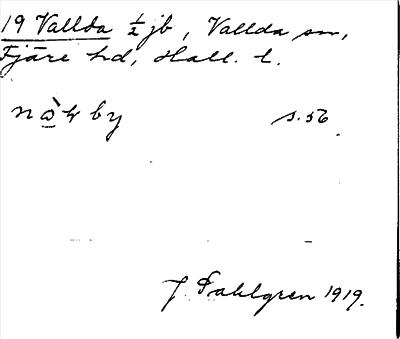 19 Vallda ½ jb, Vallda sn,
Fjäre hd, Hall. l.
s. 56
J. Sahlgren 1919.